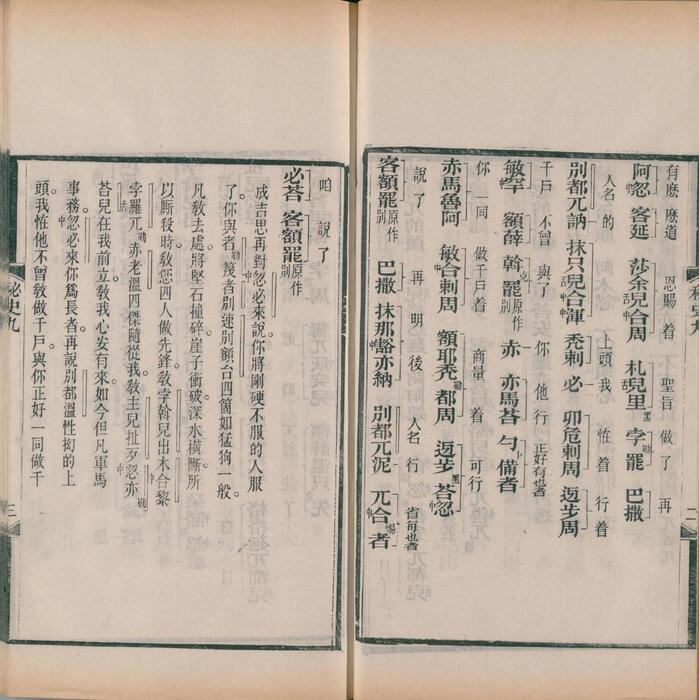 有麽 麽道 恩賜着 聖旨 做了 再
阿忽 客延 莎余兒合周 札兒里 孛罷 巴撒
人名 的 上頭我 怪着 行着
別都兀訥 抹只兒合渾 禿剌 必 卯危剌周 迓步周
千戶 不曾 與了 你 他行 正好有也者
敏罕 額薛 斡罷 原作別 赤 赤馬荅 勺備者
你 一同 做千戶着 商量着 可行
赤馬魯阿 敏合剌周 額耶禿都周 迓步荅忽
說了 再 明後 人名行 省每也者
客額罷 原作別 巴撒 抹那豁亦納 別都兀泥 兀合者
咱 說了
必荅 客額罷 原作別
成吉思再對忽必來說你將剛硬不服的人服
了你與者勒篾者別速別額台四箇如猛狗一般
凡教去處將堅石撞碎崖子衝破深水橫斷所
以廝殺時教您四人做先鋒教孛斡兒出木合黎
孛羅兀勒赤老溫四傑隨從我教主兒扯歹忽亦勒
荅兒在我前立教我心安有來如今但凡軍馬
事務忽必來你爲長者再說別都溫性拗的上
頭我怪他不曾教做千戶與你正好一同做千
祕史九
二
三